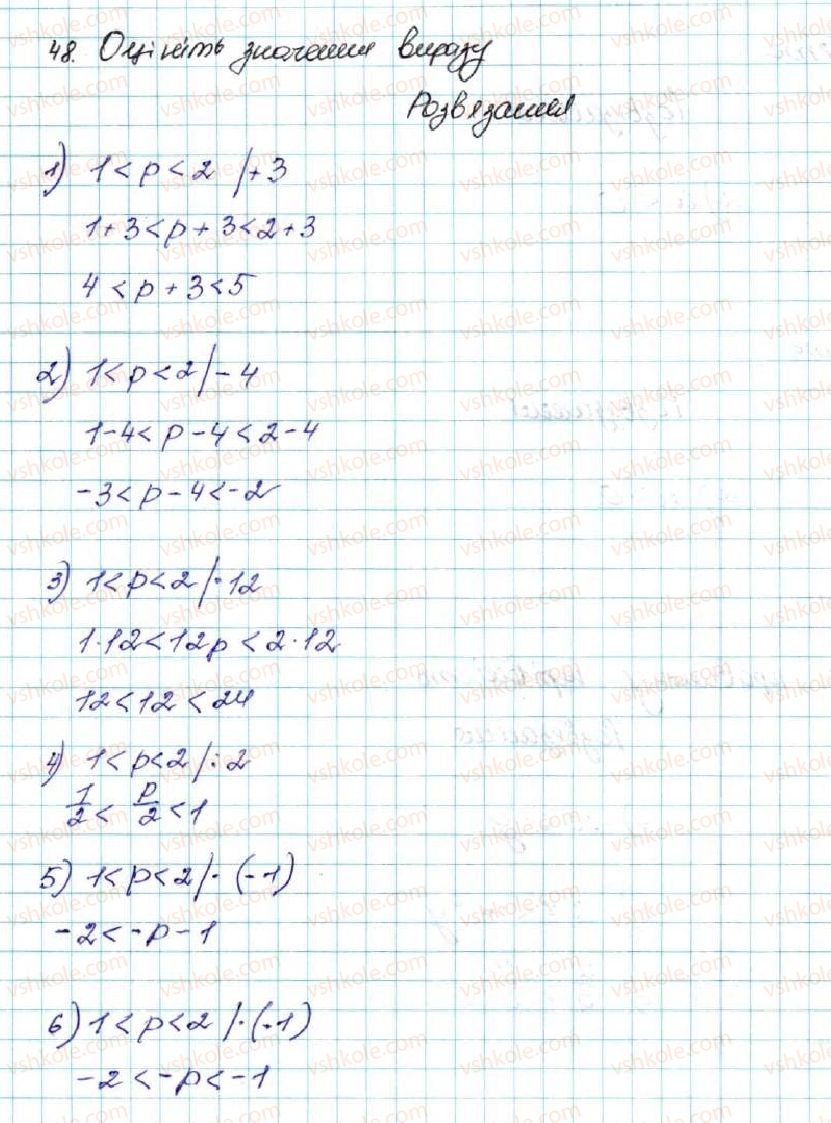 48. Оцініть значення виразу
Розвязання
1) 1 < p < 2 /+ 3
1+3 < p + 3 < 2+3
4 < p + 3 < 5
2) 1 < p < 2 / - 4
1-4 < p - 4 < 2 - 4
-3 < p - 4 < -2
3) 1 < p < 2 / · 12
1·12 < 12p < 2·12
12 < 12 < 24
4) 1 < p < 2 / : 2
1/2 < p/2 < 1
5) 1 < p < 2 / · (-1)
-2 < -p - 1
6) 1 < p < 2 / · (-1)
-2 < -p < -1